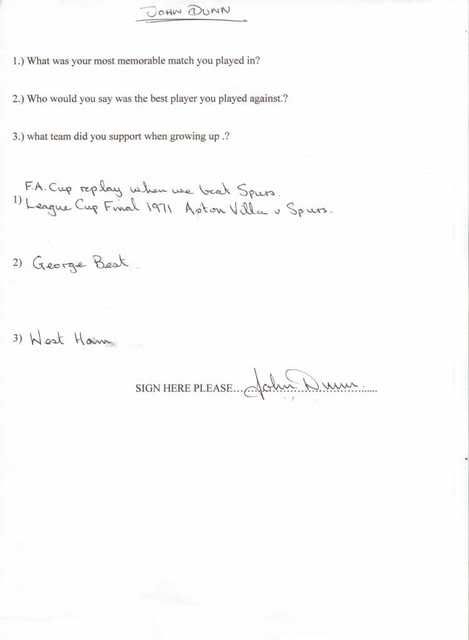 JOHN DUNN
1.) What was your most memorable match you played in?
2.) Who would you say was the best player you played against.?
3.) what team did you support when growing up .?
F.A. Cup replay when we beat Spurs.
1) League Cup Final 1971 Aston Villa v Spurs.
2) George Best
3) West Ham
SIGN HERE PLEASE... John Dunn.......